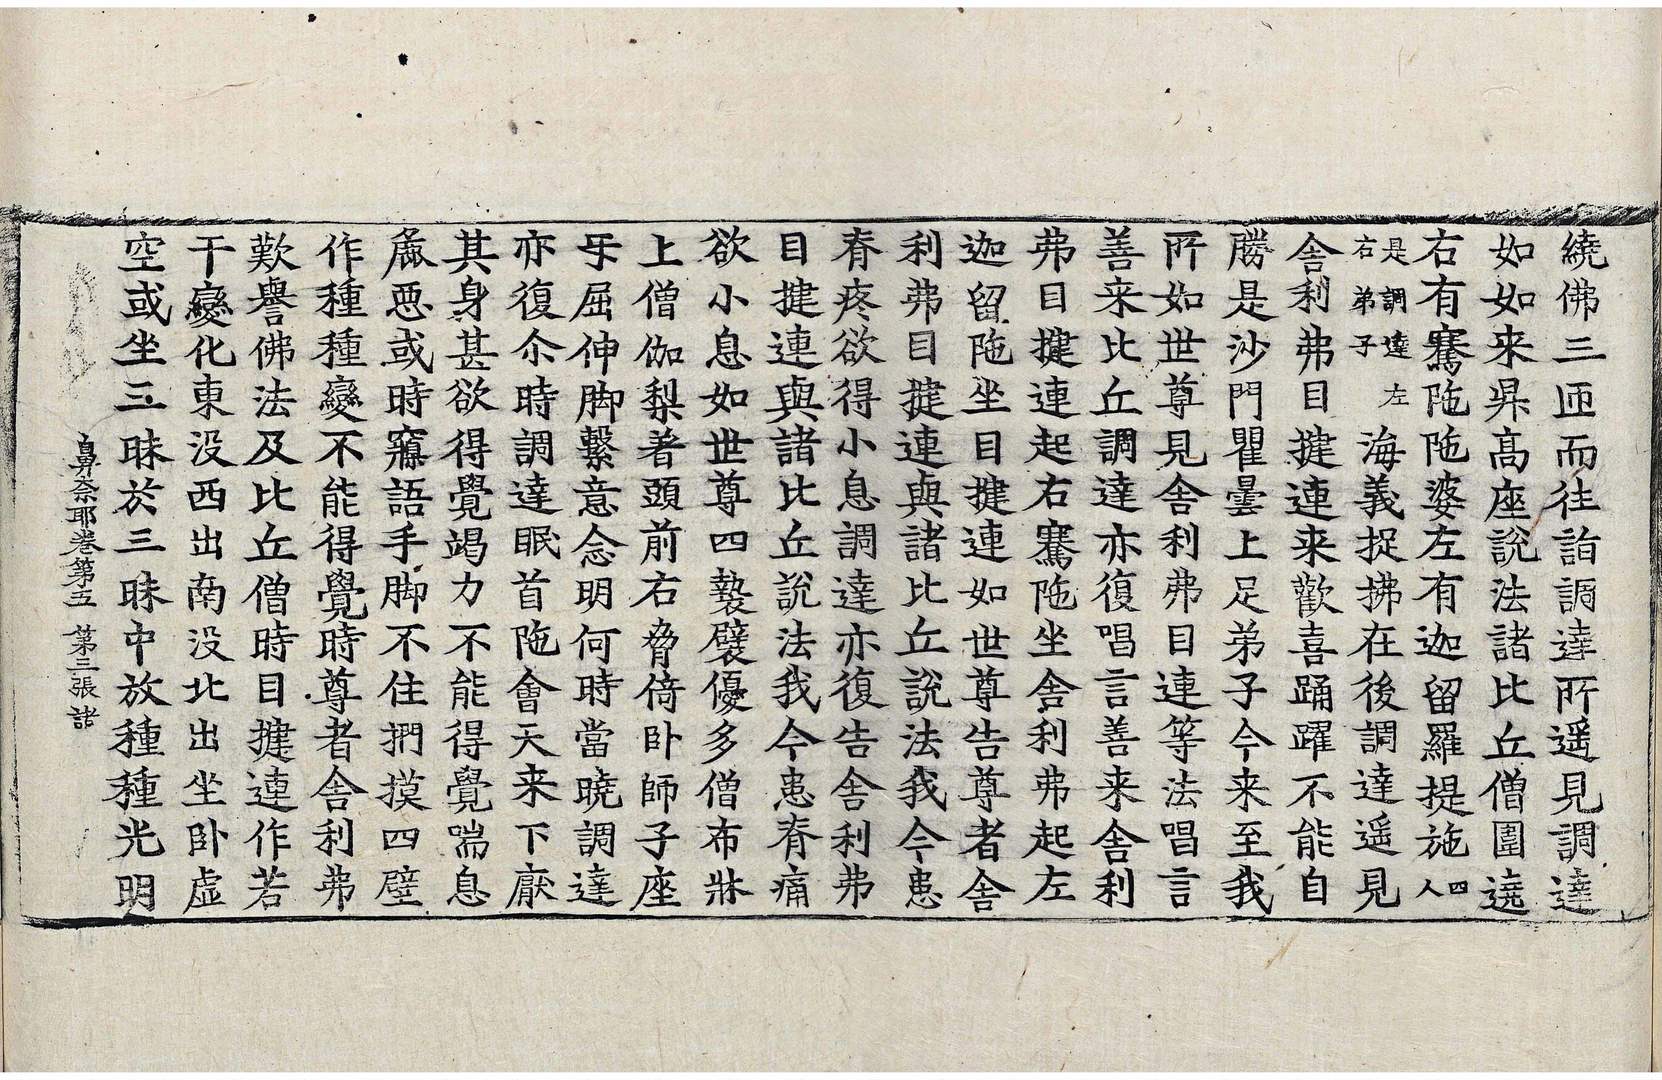 繞佛三匝而往詣調達所遥見調達
如如来昇髙座說法諸比丘僧圍遶
右有騫陁陁婆左有迦留羅提施四人
是調達左右弟子海義捉拂在後調達遥見
舍利弗目揵連来歡喜踊躍不能自
勝是沙門瞿曇上足弟子今来至我
所如世尊見舍利弗目連等法唱言
善来比丘調達亦復唱言善来舍利
弗目揵連起右騫陁坐舍利弗起左
迦留陁坐目揵連如世尊告尊者舍
利弗目揵連與諸比丘說法我今患
脊疼欲得小息調達亦復告舍利弗
目揵連與諸比丘說法我今患脊痛
欲小息如世尊四褺襞優多僧布牀
上僧伽梨著頭前右脅倚卧師子座
牙屈伸脚繫意念明何時當曉調達
亦復尒時調達眠首陁會天来下厭
其身甚欲得覺竭力不能得覺喘息
麁悪或時寱語手脚不住捫摸四壁
作種種變不能得覺時尊者舍利弗
歎譽佛法及比丘僧時目揵連作若
干變化東没西出南没北出坐卧虚
空或坐三昧於三昧中放種種光明
鼻奈耶卷第五 第三張 諸